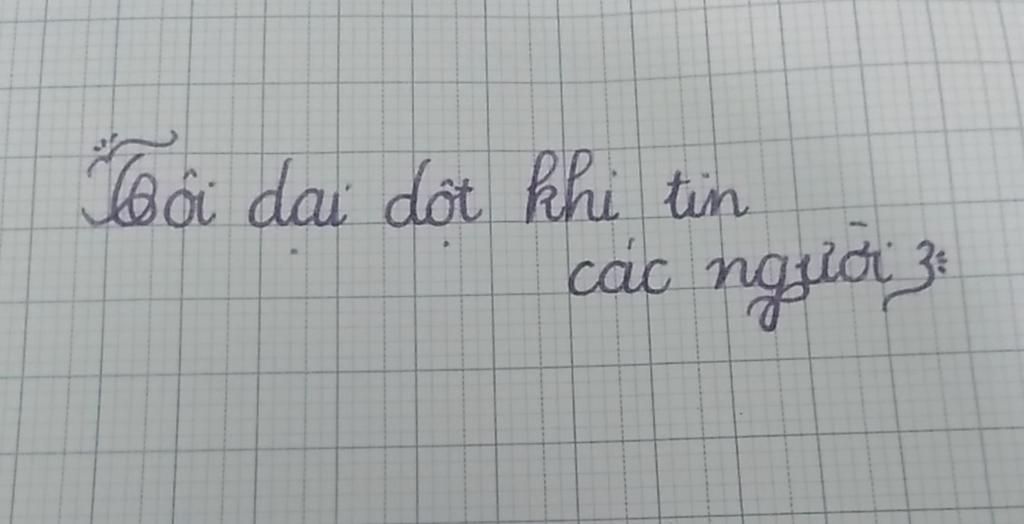 Tôi dại dột khi tin
các người